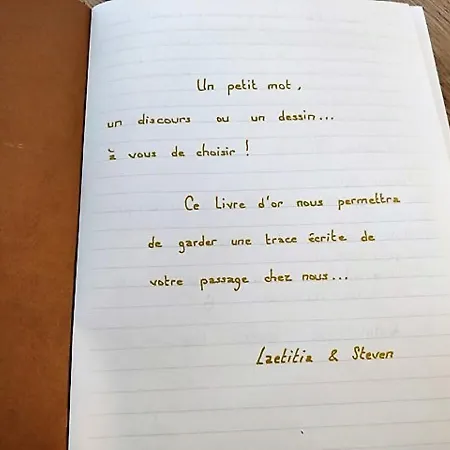 Un petit mot,
un discours ou un dessin...
à vous de choisir !
Ce Livre d'or nous permettra
de garder une trace écrite de
votre passage chez nous...
Laetitia & Steven